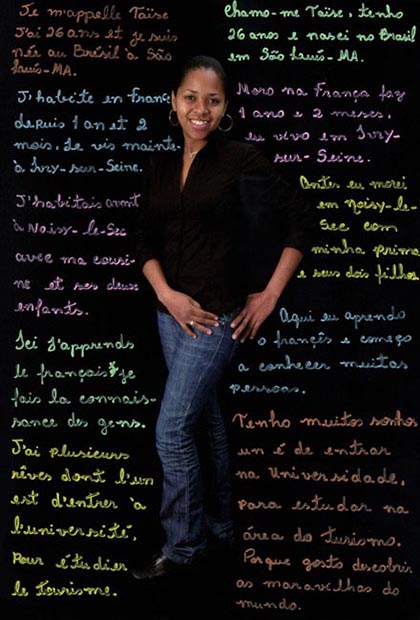 Je m'appelle Taïse
J'ai 26 ans et je suis
née au Brésil à São
Luís-MA.
J'habite en France
depuis 1 an et 2
mois. Je vis mainte-
à Ivry-sur-Seine.
J'habitais avant
à Noisy-le-Sec
avec ma cousi-
ne et ses deux
enfants.
Ici J'apprends
le français je
fais la connais-
sance des gens.
J'ai plusieurs
rêves dont l'un
est d'entrer à
l'université,
Pour étudier
le tourisme.
Chamo-me Taïse, tenho
26 anos e nasci no Brasil
em São Luís-MA.
Moro na França faz
1 ano e 2 meses,
eu vivo em Ivry-
sur-Seine.
Antes eu morei
em Noisy-le-
Sec com
minha prima
e seus dois filhos
Aqui eu aprendo
o francês e começo
a conhecer muitas
pessoas.
Tenho muitos sonhos
um é de entrar
na Universidade,
para estudar na
área do turismo.
Porque gosto descobrir
as maravilhas do
mundo.